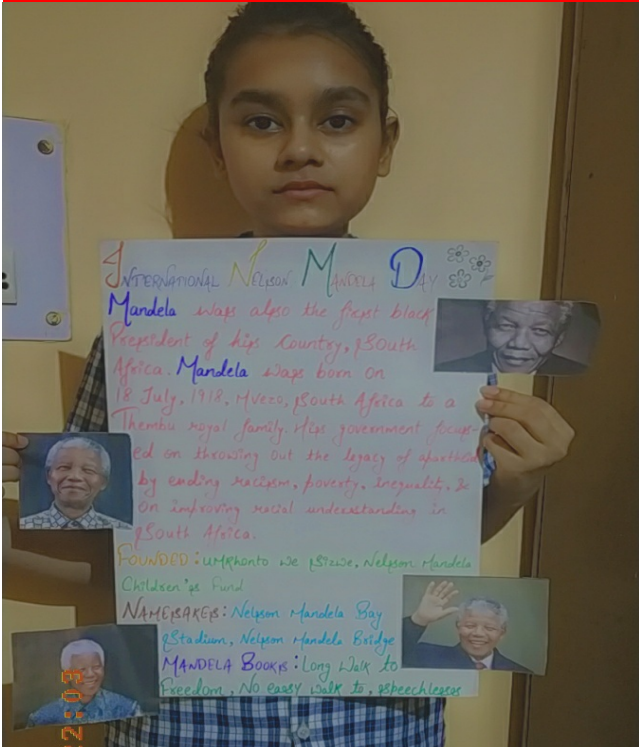 INTERNATIONAL NELSON MANDELA DAY
Mandela was also the first black
President of his Country, South
Africa. Mandela was born on
18 July, 1918, Mvezo, South Africa to a
Thembu royal family. His government focus-
ed on throwing out the legacy of apartheid
by ending racism, poverty, inequality, &
on improving racial understanding in
South Africa.
FOUNDED: UMKhonto we Sizwe, Nelson Mandela
Children's Fund
NAMESAKES: Nelson Mandela Bay
Stadium, Nelson Mandela Bridge
MANDELA BOOKS: Long Walk to
Freedom, No easy walk to, speechless
2:03